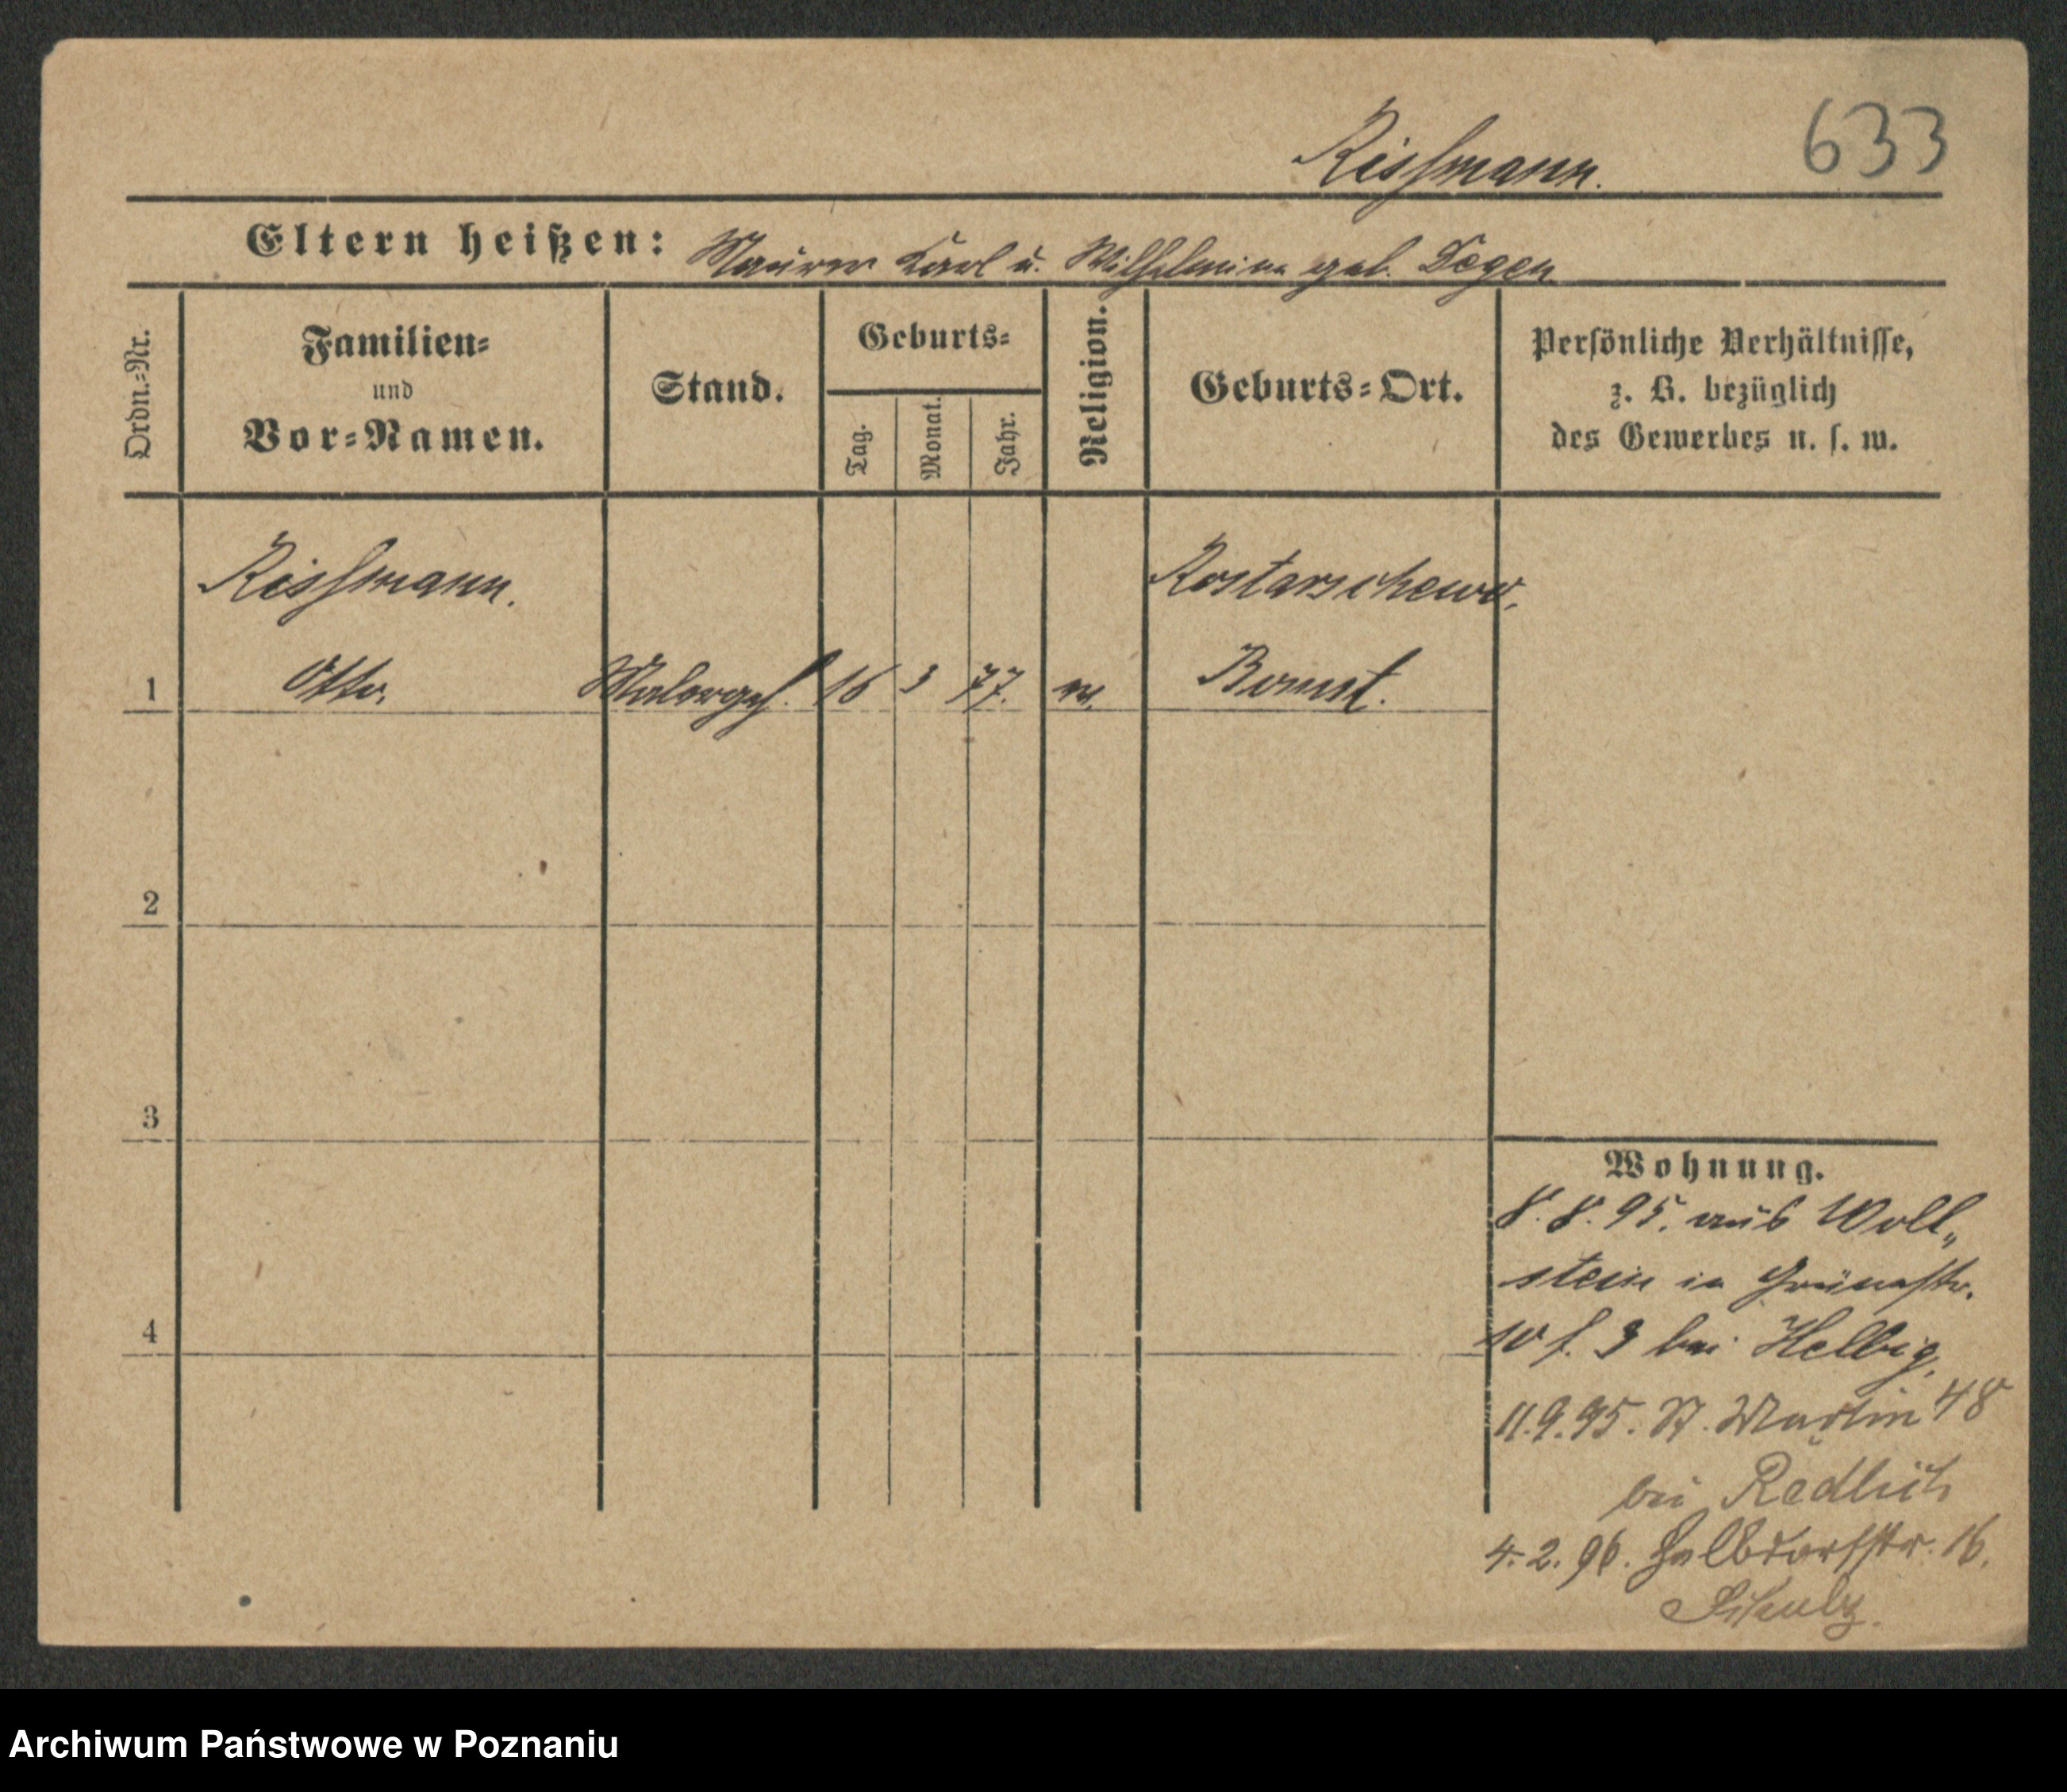 633
Rissmann.
Eltern heißen: Maurer Karl u. Wilhelmine geb. Degen
Ordn.=Nr.
Familien=
und
Vor=Namen.
Stand.
Geburts=
Tag.
Monat.
Jahr.
Religion.
Geburts=Ort.
Persönliche Verhältnisse,
z. B. bezüglich
des Gewerbes u. s. w.
Rissmann.
Rostarschewo.
1 Otto. Malergeh. 16 3 77. Bomst.
2
3
4
Wohnung.
8. 8. 95. aus Woll„
stein in Grünestr.
10 f. 3 bei Helbig.
11.9.95. St. Martin 48
bei Redlich
4. 2. 96. Halbdorfstr. 16.
Schulz.
Archiwum Państwowe w Poznaniu